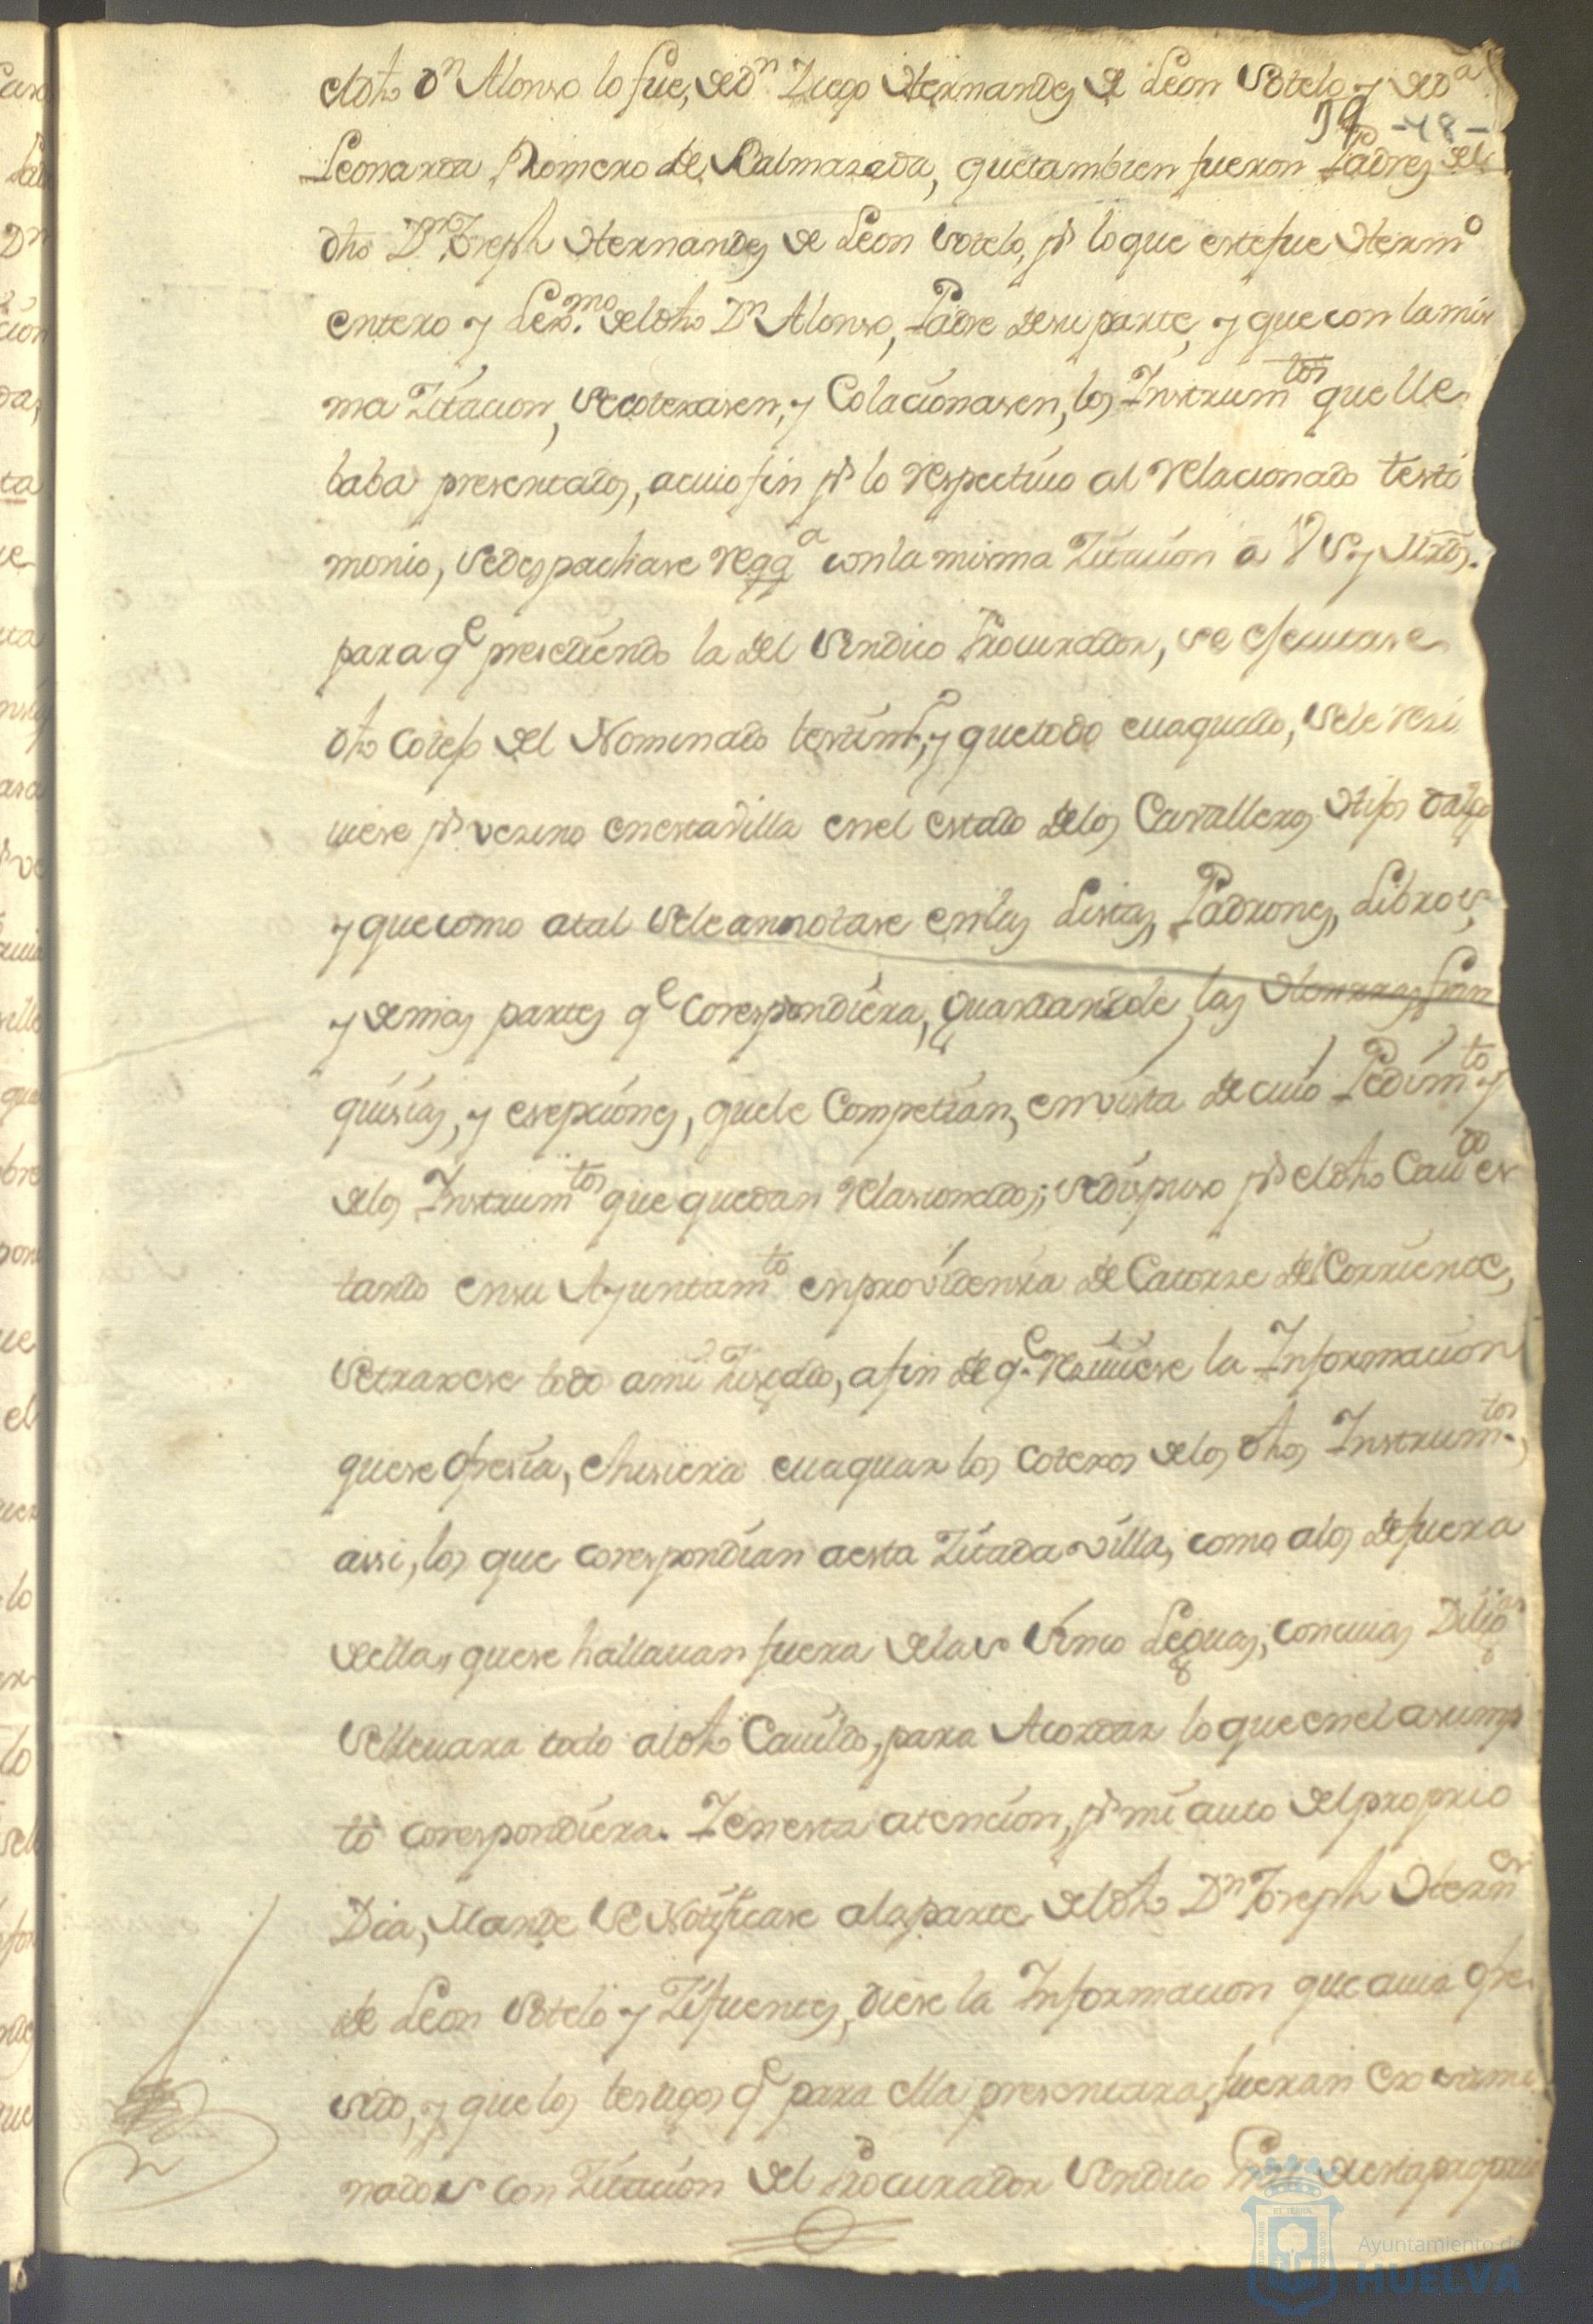 eldho Dn Alonso lo fue, de Dn Diego Hernandes de Leon Sotelo y de Da
19 -48-
Leonarda Romero de Balmaseda, que tambien fueron Padres del
dho Dn Joseph Hernandes de Leon Sotelo, pr lo que este fue Hermo
entero y Lexmo del dho Dn Alonso, Padre de su parte, y que con la mis
ma Zitacion, se cotexasen, y Colacionasen, los Instrumtos que lle
baba presentados, a cuio fin pr lo respectivo al relacionado testi
monio, se despachase reqqa con la misma Zitacion a V S y Mrds.
para qe presediendo la del Sindico Procurador, se esecutase
dho cotejo del Nominado testimo, y que todo evaquado, se le resi
viese pr vezino en esta villa en el estado de los Cavalleros Hijos dalgo
y que como a tal se le annotase en las Listas, Padrones, Libros,
y demas partes qe Corespondiera, guardansele las Honrras fran
quisias, y esepciones, que le Competian, en vista de cuio Pedimto y
de los Instrumtos que quedan relasionados; se dispuso pr el dho Cavdo es
tando en su Ayuntamto en providensia de Catorze del Corriente,
se traxese todo a mi Jusgado, a fin de qe resiviese la Informacion
que se ofresia, e hisiera evaquar los cotexos de los dhos Instrumtos,
assi, los que corespondian a esta Zitada villa, como a los de fuera
de ella, que se hallavan fuera de las Sinco Leguas, con cuias Diligas
se llevara todo al dho Cavildo, para Acordar lo que en el asump
to corespondiera. Y en esta atencion, pr mi auto del proprio
Dia, Mande se Notificase a la parte del dho Dn Joseph Hernes
de Leon Sotelo y Zifuentes, diese la Informacion que avia ofre
sido, y que los testigos qe para ella presentara, fueran Exsami
nados con Zitacion del Procurador Sindico de esta propria
Ayuntamiento de
HUELVA